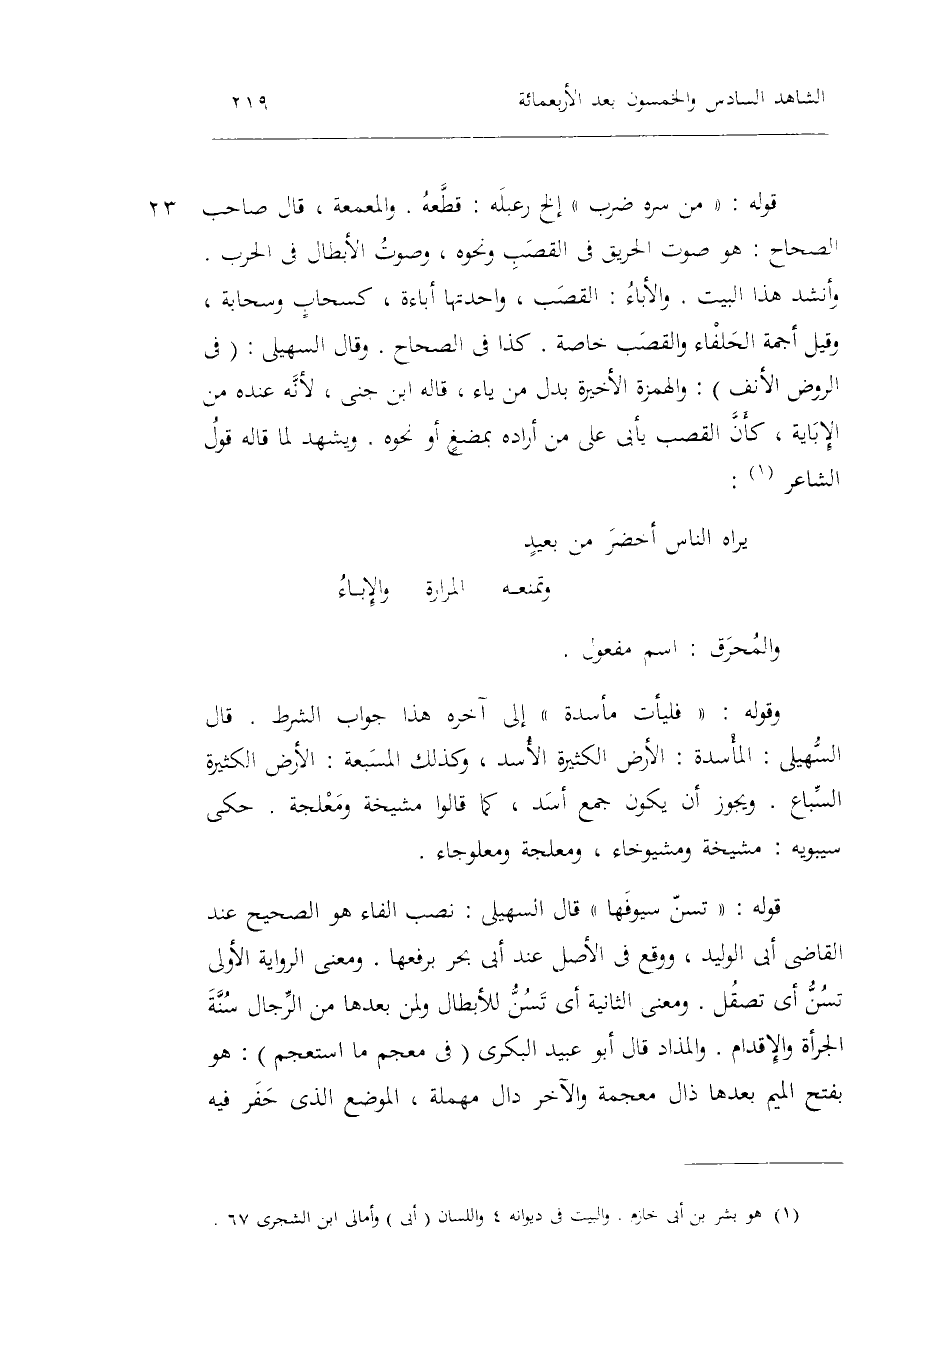 الشاهد السادس والخمسون بعد الأربعمائة ٢١٩
قوله : « من سره ضرب » إلخ رعبلَه : قطَّعهُ . والمعمعة ، قال صاحب ٢٣
الصحاح : هو صوت الحريق فى القصَبِ ونحوه ، وصوتُ الأبطال فى الحرب .
وأنشد هذا البيت . والأباءُ : القصَب ، واحدتها أباءة ، كسحابٍ وسحابة ،
وقيل أجمة الحَلْفاء والقصَب خاصة . كذا فى الصحاح . وقال السهيلى : ( فى
الروض الأنف ) : والهمزة الأخيرة بدل من ياء ، قاله ابن جنى ، لأنَّه عنده من
الإبَاية ، كأَنَّ القصب يأبى على من أراده بمضغٍ أو نحوه . ويشهد لما قاله قولُ
الشاعر (١) :
يراه الناس أخضرَ من بعيدٍ
وتمنعـه المرارة والإبـاءُ
والمُحرَق : اسم مفعول .
وقوله : « فليأت مأسدة » إلى آخره هذا جواب الشرط . قال
السُّهيلى : المأْسدة : الأرض الكثيرة الأُسد ، وكذلك المسَبعة : الأرض الكثيرة
السِّباع . ويجوز أن يكون جمع أسَد ، كما قالوا مشيخة ومَعْلجة . حكى
سيبويه : مشيخة ومشيوخاء ، ومعلجة ومعلوجاء .
قوله : « تسنّ سيوفَها » قال السهيلى : نصب الفاء هو الصحيح عند
القاضى أبى الوليد ، ووقع فى الأصل عند أبى بحر برفعها . ومعنى الرواية الأولى
تسُنُّ أى تصقُل . ومعنى الثانية أى تَسُنُّ للأبطال ولمن بعدها من الرِّجال سُنَّةَ
الجرأة والإقدام . والمذاد قال أبو عبيد البكرى ( فى معجم ما استعجم ) : هو
بفتح الميم بعدها ذال معجمة والآخر دال مهملة ، الموضع الذى حَفَر فيه
(١) هو بشر بن أبى خازم . والبيت فى ديوانه ٤ واللسان ( أبى ) وأمالى ابن الشجرى ٦٧ .